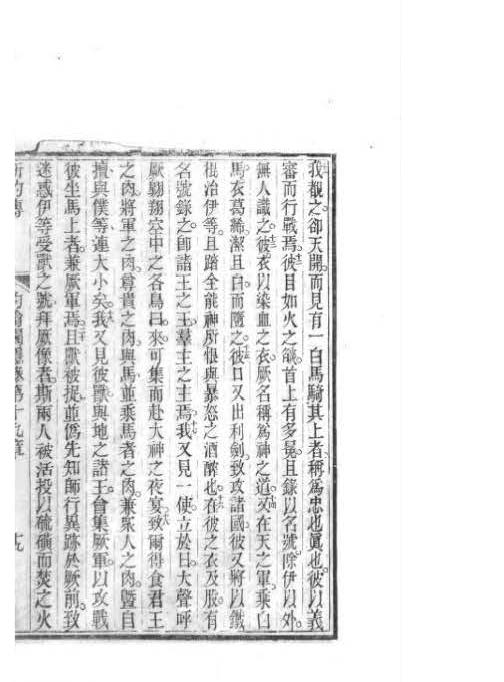 我觀之卻天開而見有一白馬騎其上者稱為忠也眞也彼以義
審而行戰焉彼目如火之燄首上有多冕且錄以名號除伊以外
無人識之彼衣以染血之衣厥名稱為神之道又在天之軍乘白
馬衣葛絺潔且白而隨之彼口又出利劍致攻諸國彼又將以鐵
棍治伊等且踏全能神所恨與暴怒之酒醡也在彼之衣及股有
名號錄之卽諸王之王羣主之主焉我又見一使立於日大聲呼
厥翱翔空中之各鳥曰來可集而赴大神之夜宴致爾得食君王
之肉將軍之肉尊貴之肉與馬並乘馬者之肉兼眾人之肉暨自
擅與僕等連大小矣我又見彼獸與地之諸王會集厥軍以攻戰
彼坐馬上者兼厥軍焉且獸被捉並僞先知師行異跡於厥前致
迷惑伊等受獸之號拜厥像者斯兩人被活投以硫磺而焚之火
新約傳 第十九章 十九